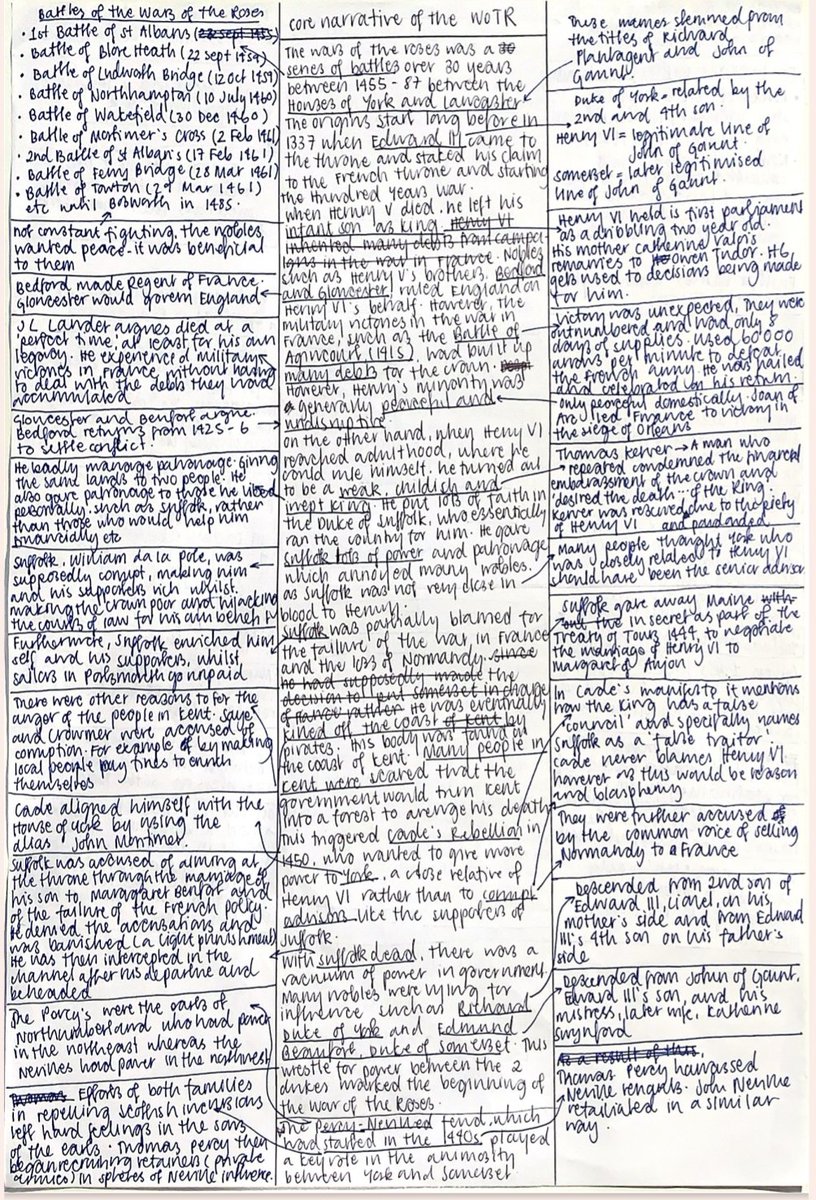 Battles of the Wars of the Roses
• 1st Battle of St Albans (23 sept 1455)
• Battle of Blore Heath (22 sept 1459)
• Battle of Ludworth Bridge (12 oct 1459)
• Battle of Northhampton (10 July 1460)
• Battle of Wakefield (30 Dec 1460)
• Battle of Mortimer's Cross (2 Feb 1461)
• 2nd Battle of St Alban's (17 Feb 1461)
• Battle of Ferry Bridge (28 Mar 1461)
• Battle of Towton (29 Mar 1461)
etc until Bosworth in 1485.
not constant fighting, the nobles
wanted peace - it was beneficial
to them
Bedford made Regent of France.
Gloucester would govern England
J L Lander argues died at a
'perfect time', at least for his own
legacy. He experienced military
victories in France, without having
to deal with the debts they had
accumulated
Gloucester and Benfort argue.
Bedford returns from 1425-6
to settle conflict
He badly manage patronage. Giving
the same lands to two people. He
also gave patronage to those he liked
personally, such as Suffolk, rather
than those who would help him
financially etc
Suffolk, William da la Pole, was
supposedly corrupt, making him
and his supporters rich whilst
making the crown poor and hijacking
the courts of law for his own benefit
Furthermore, Suffolk enriched him
self and his supporters, whilst
sailors in Portsmouth go unpaid
There were other reasons to for the
anger of the people in Kent. Saye
and Crowmer were accused of
corruption. For example of by making
local people pay fines to enrich
themselves
Cade aligned himself with the
House of York by using the
alias 'John Mortimer.
Suffolk was accused of aiming at
the throne through the marriage of
his son to Maragaret Benfort and
of the failure of the French policy.
He denied the accusations and
was banished (a light punishment)
He was then intercepted in the
channel after his departure and
beheaded
The Percy's were the earls of
Northumberland who had power
in the northeast whereas the
Nevilles had power in the northwest
Thomas Efforts of both families
in repelling Scottish incursions
left hard feelings in the sons
of the earls. Thomas Percy then
began recruiting retainers (private
armies) in spheres of Neville influence.
core narrative of the WOTR
The wars of the roses was a 30
series of battles over 30 years
between 1455-87 between the
Houses of York and Lancaster
The origins start long before in
1337 when Edward III came to
the throne and staked his claim
to the French throne and starting
the Hundred Years War.
when Henry V died, he left his
infant son as king. Henry VI
inherited many debts from campa-
igns in the war in France. Nobles
such as Henry V's brothers, Bedford
and Gloucester, ruled England on
Henry VI's behalf. However, the
military victories in the war in
France, such as the Battle of
Agincourt (1415), had built up
many debts for the crown.
However, Henry's minority was
a generally peaceful and
undisruptive
on the other hand, when Henry VI
reached adulthood, where he
could rule himself, he turned out
to be a weak, childish and
inept king. He put lots of faith in
the Duke of Suffolk, who essentially
ran the country for him. He gave
Suffolk lots of power and patronage
which annoyed many nobles.
as Suffolk was not very close in
blood to Henry.
Suffolk was partially blamed for
the failure of the war in France
and the loss of Normandy. since
he had supposedly made the
decision to put somerset in charge
of france rather He was eventually
killed off the coast of Kent by
pirates. His body was found at
the coast of Kent. Many people in
Kent were scared that the
government would turn Kent
into a forest to avenge his death
This triggered Cade's Rebellion in
1450, who wanted to give more
power to York, a close relative of
Henry VI rather than to corrupt
advisors like the supporters of
Suffolk.
With Suffolk dead, there was a
vacuum of power in government.
Many nobles were vying for
influence such as Richard
Duke of York and Edmund
Beaufort, Duke of Somerset. This
wrestle for power between the 2
dukes marked the beginning of
the War of the Roses.
The Percy-Nevilled feud, which
had started in the 1440s, played
a key role in the animosity
between York and Somerset
These names stemmed from
the titles of Richard
Plantagent and John of
Gaunt.
Duke of York = related by the
2nd and 4th son.
Henry VI = legitimate line of
John of Gaunt.
Somerset = later legitimised
line of John of Gaunt.
Henry VI held is first parliament
as a dribbling two year old.
His mother Catherine Valois
remarries to Owen Tudor. H6
gets used to decisions being made
for him.
Victory was unexpected, They were
outnumbered and had only 8
days of supplies. Used 60000
arrows per minute to defeat
the French army. He was hailed
and celebrated on his return.
only peaceful domestically. Joan of
Arc led France to victory in
the siege of Orleans
Thomas Kerver → A man who
repeated condemned the financial
embarassment of the crown and
'desired the death... of the King'.
Kerver was rescued due to the piety
of Henry VI and pardoned
Many people thought York who
was closely related to Henry VI
should have been the senior advisor
Suffolk gave away Maine with-
out the in secret as part of the
Treaty of Tours 1444, to negotiate
the marriage of Henry VI to
Margaret of Anjou
In Cade's manifesto it mentions
how the King has a 'false
council' and specifally names
Suffolk as a 'false traitor'.
Cade never blames Henry VI
however as this would be reason
and blasphemy
They were further accused of
by the common voice of selling
Normandy to a France
Descended from 2nd son of
Edward III, Lionel, on his
mother's side and from Edward
III's 4th son on his father's
side
Descended from John of Gaunt,
Edward III's son, and his
mistress, later wife, Katherine
Swynford
As a result of this,
Thomas Percy harrassed
Neville tenants. John Neville
retaliated in a similar
way.